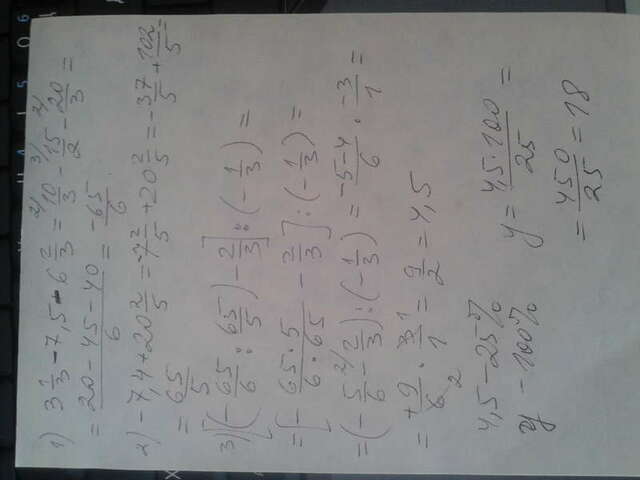 1) 3 1/3 - 7,5 - 6 2/3 = 2/ 10/3 - 3/ 15/2 - 2/ 20/3 =
= (20 - 45 - 40)/6 = -65/6
2) -7,4 + 20 2/5 = -7 2/5 + 20 2/5 = -37/5 + 102/5
= 65/5
3) [(-65/6 : 65/5) - 2/3] : (-1/3) =
= [-(65·5)/(6·65) - 2/3] : (-1/3) =
= (-5/6 - 2/ 2/3) : (-1/3) = (-5-4)/6 · -3/1 =
= +9/6 2 · 3/1 1 = 9/2 = 4,5
4,5 - 25%
y - 100%
y = (4,5·100)/25 =
= 450/25 = 18